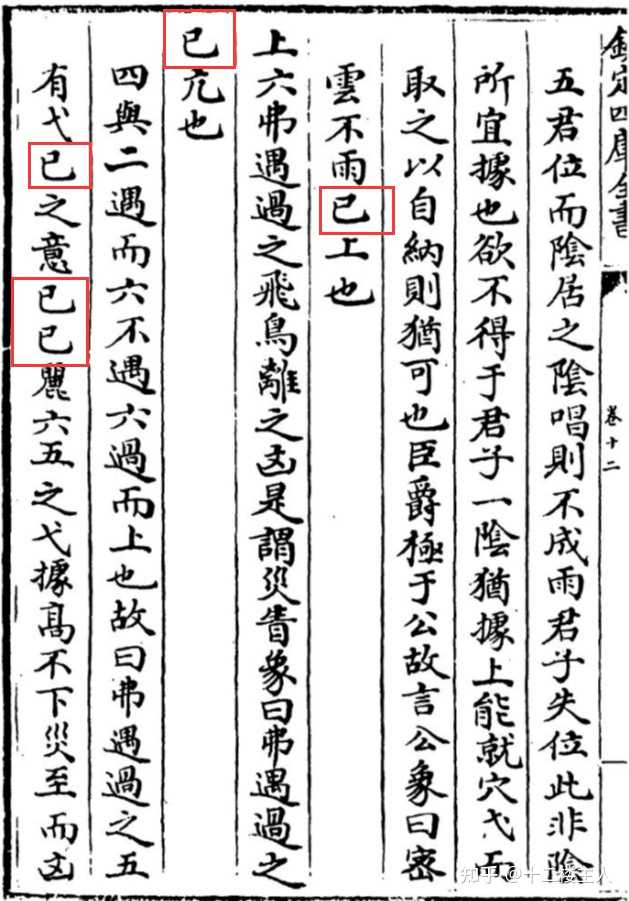 欽定四庫全書
卷十二
五君位而陰居之陰唱則不成雨君子失位此非陰
所宜據也欲不得于君子一陰猶據上能就穴弋五
取之以自納則猶可也臣爵極于公故言公象曰密
雲不雨已上也
上六弗遇過之飛鳥離之凶是謂災眚象曰弗遇過之
已亢也
四與二遇而六不遇六過而上也故曰弗遇過之五
有弋已之意已已麗六五之弋據高不下災至而凶
知乎 @十二楼主人